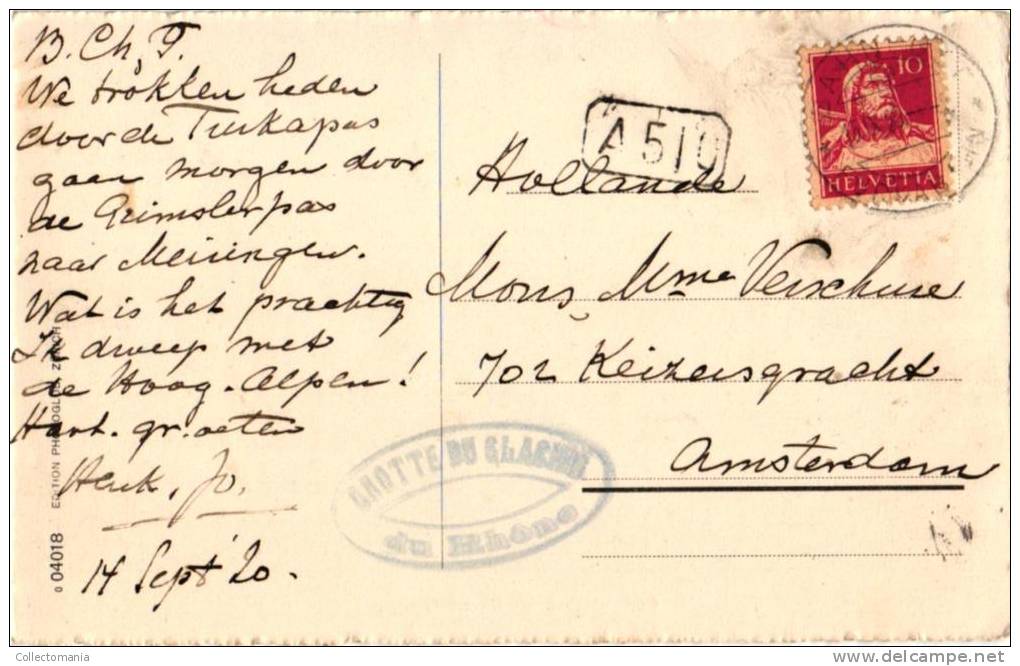 B. Ch. T.
We trokken heden
door de Furkapas
gaan morgen door
de Grimslerpas
naar Meiringen.
Wat is het prachtig
Ik dweep met
de Hoog-Alpen!
Hart. groeten
Henk, Jo.
14 Sept 20.
0 04018 EDITION PHOTOGLOB ZÜRICH
A 510
10
HELVETIA
Hollande
Mons, Mme Verschure
702 Keizersgracht
Amsterdam
GROTTE DU GLACIER
du Rhône
Collectomania
delcampe.net